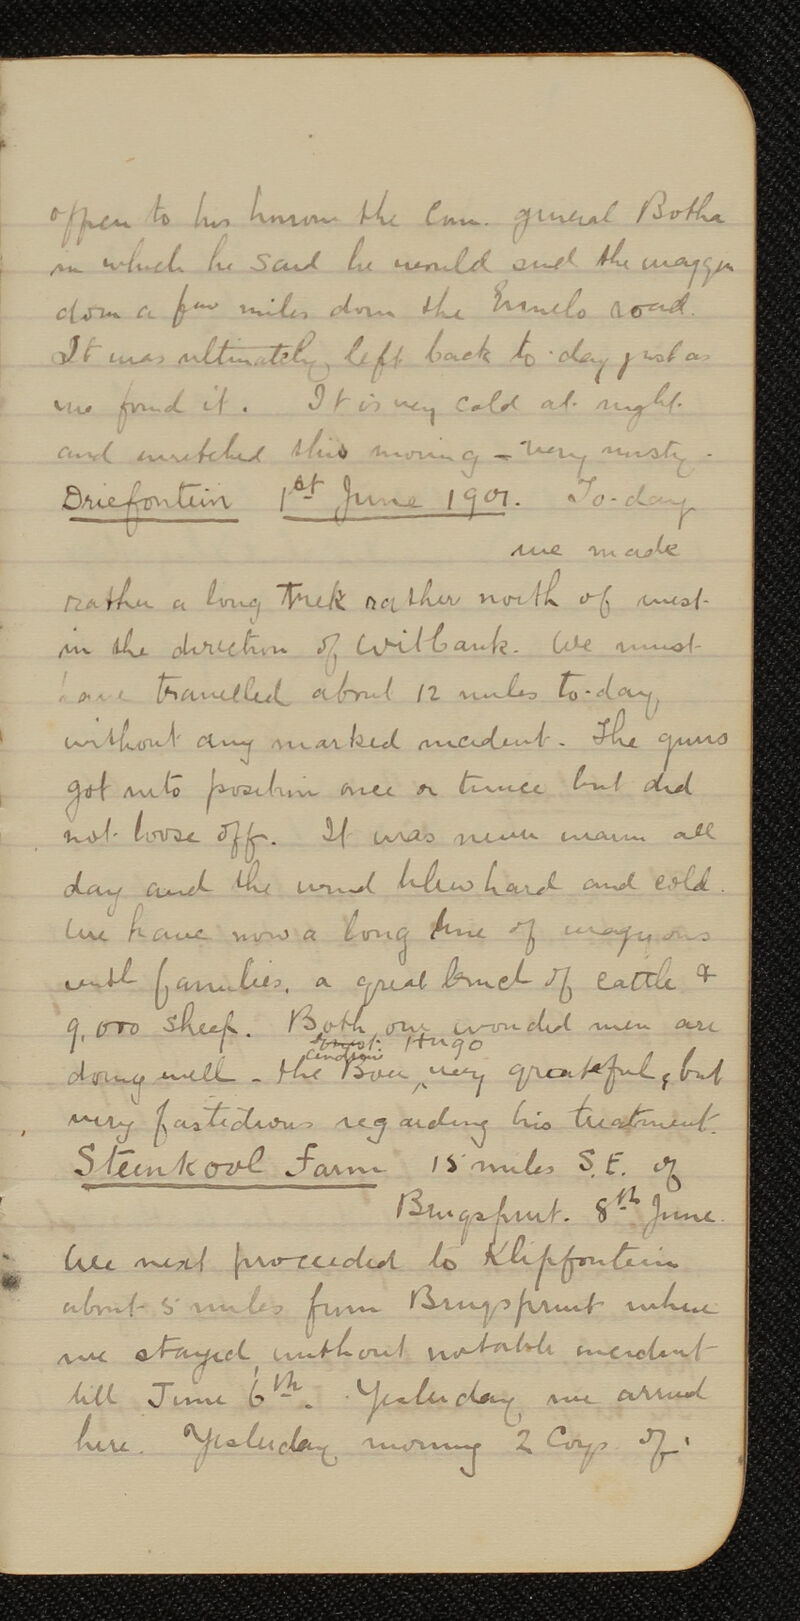 open to his honour the Com. general Botha
in which he said he would send the waggon
down a few miles down the Ermelo road.
It was ultimately left back to-day just as
we found it. It is very cold at night
and wretched this morning - very misty.
Driefontein 1st June 1901. To-day
we made
rather a long trek rather north of west
in the direction of Witbank. We must
have travelled about 12 miles to-day,
without any marked incident. The guns
got into position once or twice but did
not loose off. It was never warm all
day and the wind blew hard and cold.
We have now a long line of waggons
with families, a great bunch of cattle &
9,000 sheep. Both our wounded men are
Hugo
doing well - the Boer very grateful, but
very fastidious regarding his treatment.
Steenkool Farm 15 miles S.E. of
Brugspruit. 8th June.
We next proceeded to Klipfontein
about 5 miles from Brugspruit where
we stayed, without notable incident
till June 6th. Yesterday we arrived
here. Yesterday morning 2 Corps of